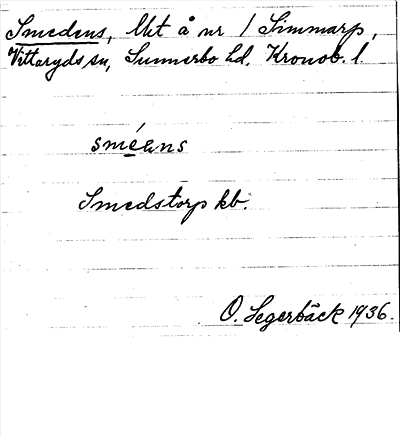 Smedens, lht å nr 1 Simmarp,
Vittaryds sn, Sunnerbo hd, Kronob. l
sméens
Smedstorp kb.
O. Segerbäck 1936.